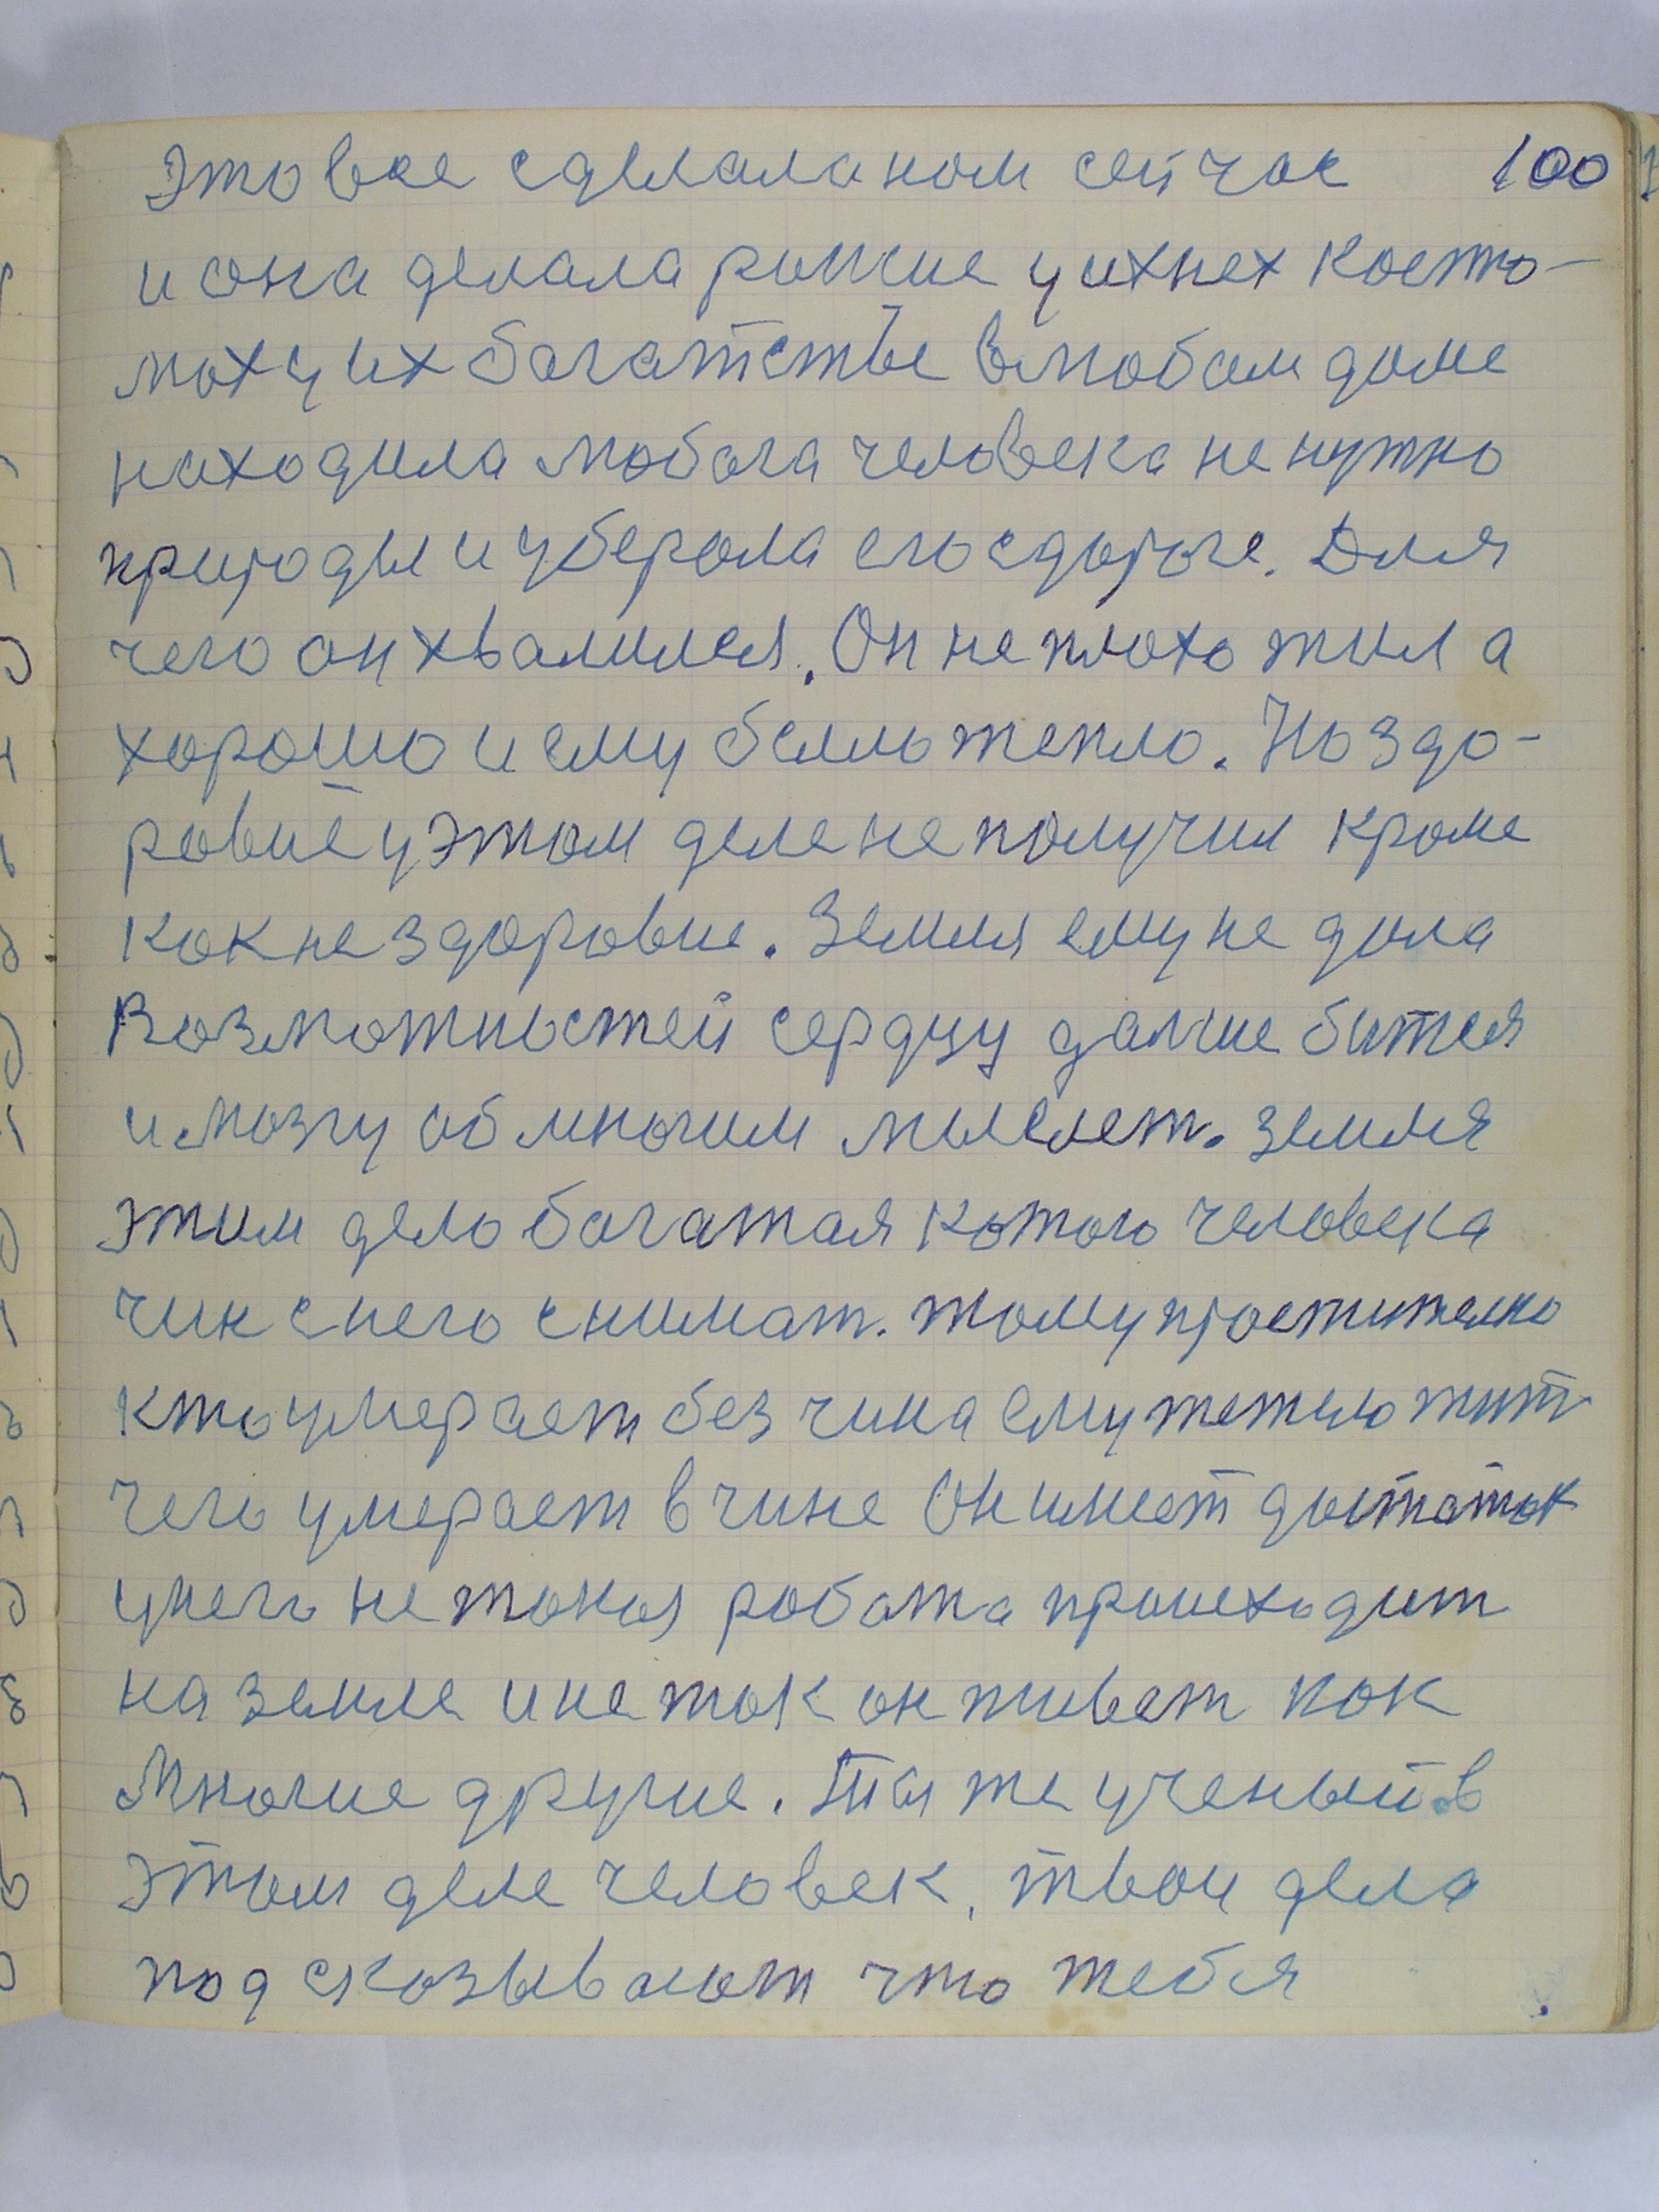 Это все сделала нам сейчас 100
и она делала раньше у ихнех косте-
мах у их багатстве в любом доме
находила любога человека не нужно
природы и уберала его сдароге. Для
чего он хвалился. Он не плохо жил а
хорошо и ему было тепло. Но здо-
ровие у этом деле не получил кроме
как не здоровие. Земля ему не дала
Возможностей сердцу дальше битея
и мозгу об многим мыслет. земля
этим дело багатая котого человека
чин с него снимат. тому простително
кто умерает без чина ему тежело жит
чего умерает в чине Он имеет достаток
у него не токая работа происходит
на земле и не так он живет как
Многие другие. Ты же ученый в
этом деле человек, твои дела
подсказывают что тебя